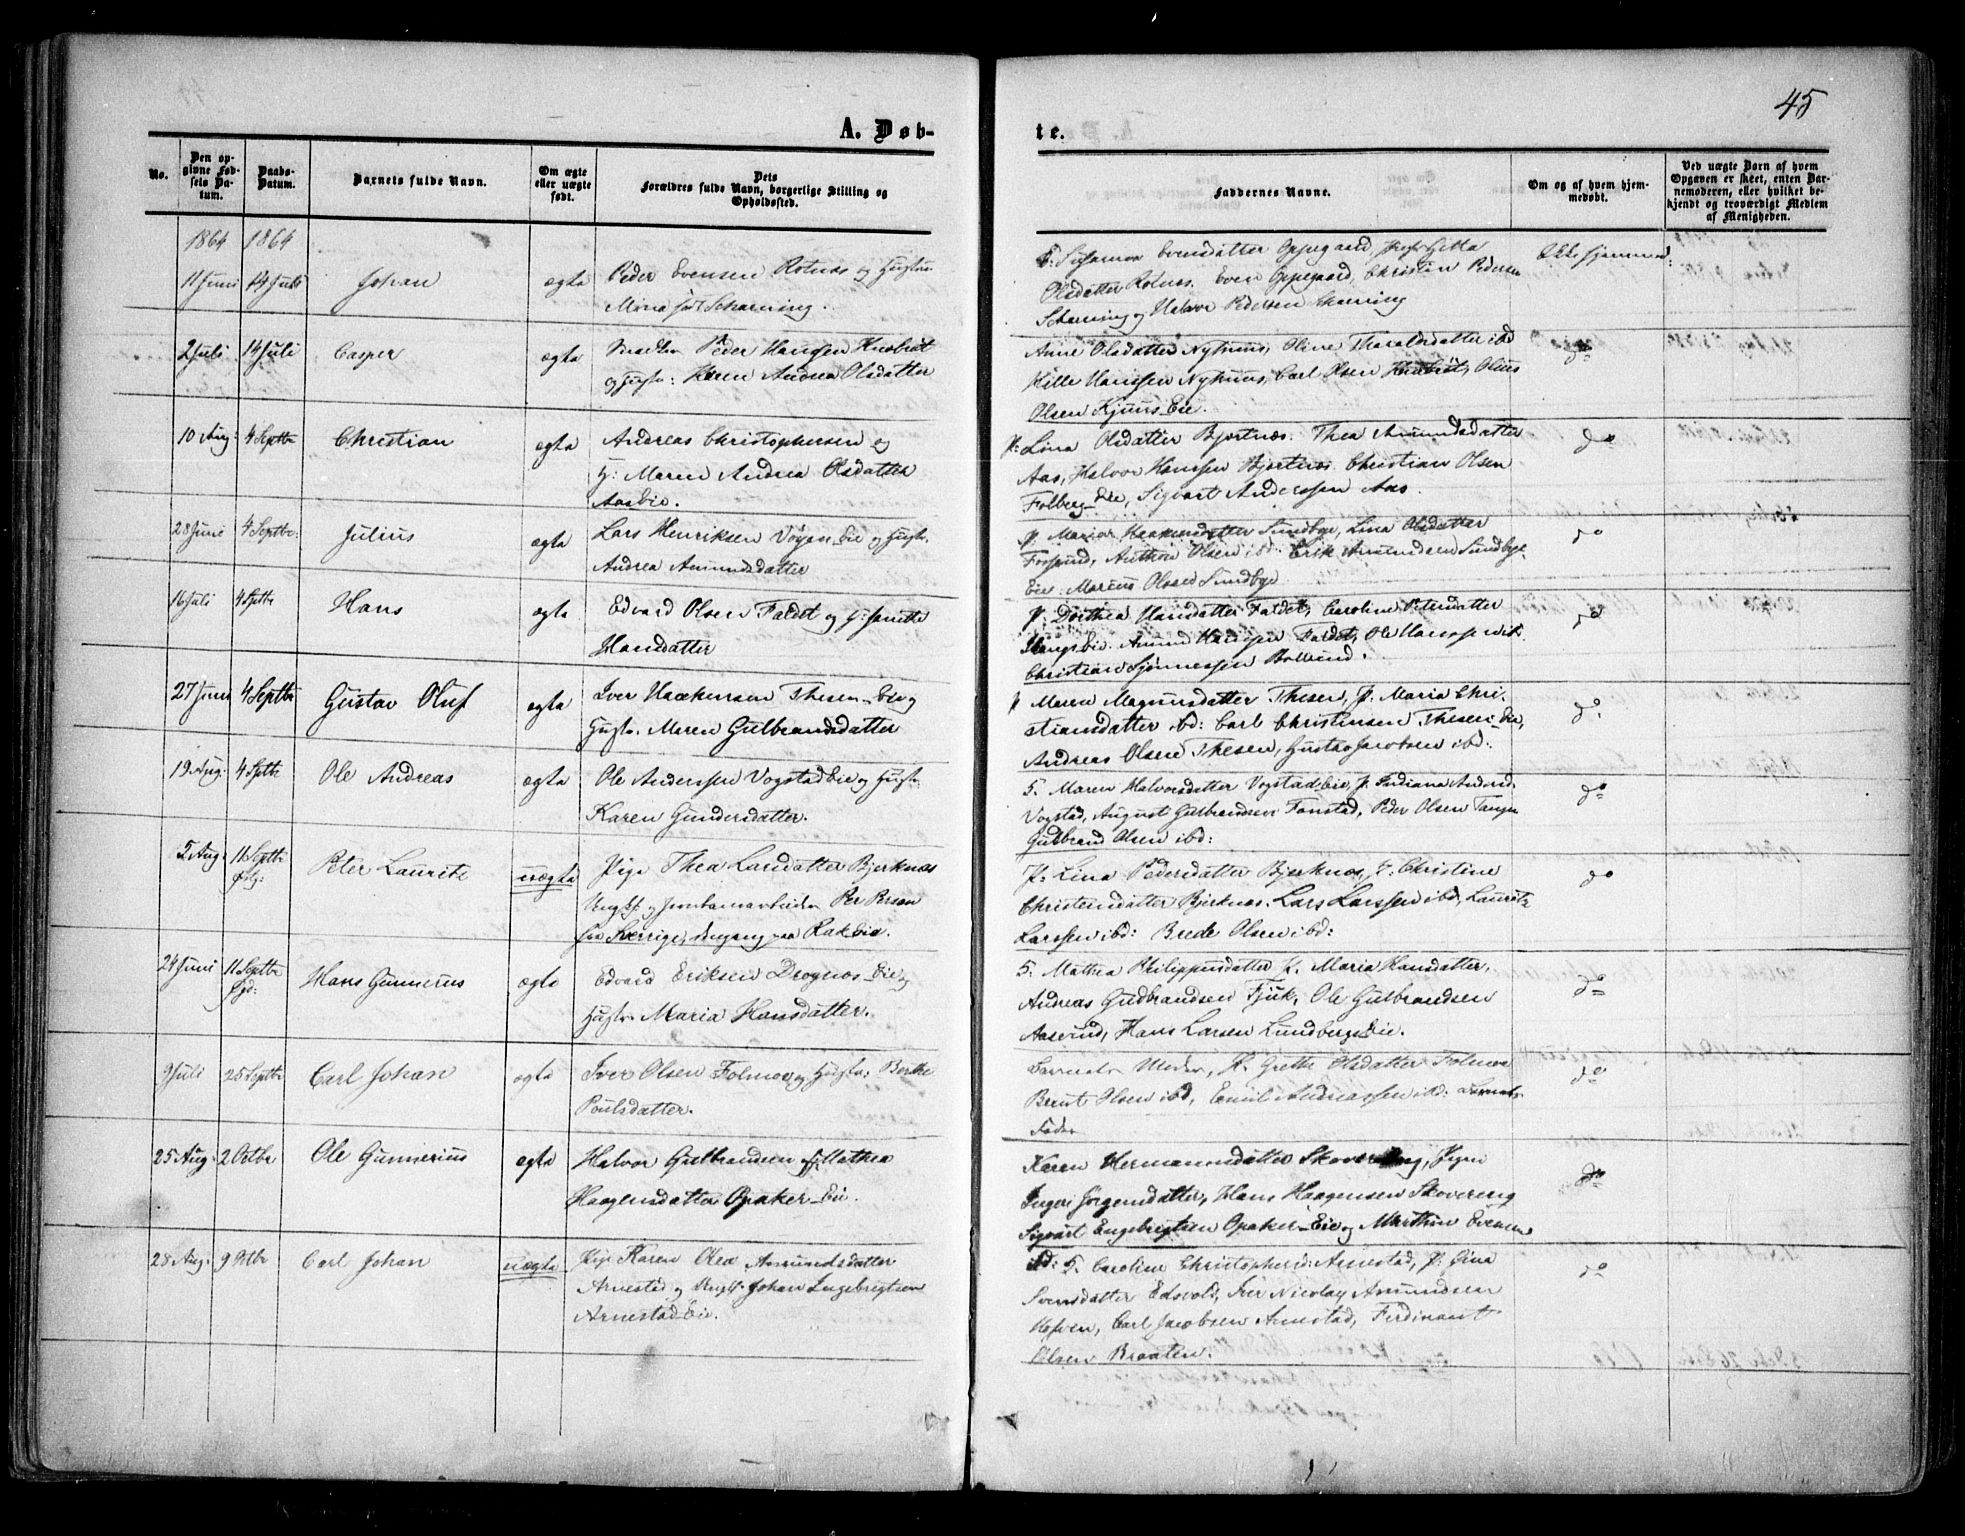 45
A. Døb-
te.
No.
Den op-
givne Fød-
sels Da-
tum.
Daabs-
Datum.
Barnets fulde Navn.
Om ægte
eller uægte
født.
Dets
Forældres fulde Navn, borgerlige Stilling og
Opholdssted.
Faddernes Navne.
Om og af hvem hjem-
medøbt.
Ved uægte Barn af hvem
Opgaven er skeet, enten Bar-
nemoderen, eller hvilket be-
kjendt og troværdigt Medlem
af Menigheden.
1864 1864
11 Juni 14 Juli Johan ægte Peder Evensen Rotnæs og Hustr.
Mina Scharning.
Evensdatter Oppegaard,
Olsdatter Rotnæs. Even Oppegaard, Christin Pedersen
Scharning og Halvor Pedersen Scharning
Ikke hjemmed:
2 Juli 14 Juli Casper ægte Peder Hansen Knebøt
og Hustr: Karen Andrea Olsdatter
Anne Olsdatter Nyhuus, Oline Tharaldsdatter ibd
Hanssen Nyhuus, Carl Olsen Knebøt, Olaus
Olsen Kjuus Eie.
do
10 Aug: 4 Septbr Christian ægte Andreas Christophersen og
H: Maren Andrea Olsdatter
Aas Eie.
P: Lina Olsdatter Bjertnæs. Thea Amundsdatter
Aas, Halvor Hanssen Bjertnæs. Christian Olsen
Folberg Eie, Sigvart Anderssen Aas.
do
28 Juni 4 Septbr: Julius ægte Lars Henriksen Vøyen Eie og Hustr.
Andrea Amundsdatter
P. Maria Haakensdatter Sundbye, Lina Olsdatter
Fossund, Anthon Olsen ibd. Erik Amundsen Sundbye
Eie. Marius Olsen Sundbye
do
16 Juli 4 Septbr Hans ægte Edvard Olsen Faldet og H: Janette
Hansdatter
P: Dorthea Hansdatter Faldet, Caroline Petersdatter
Amund Hanssen Faldet, Ole Hanssen ib.
Christian Bollerud.
do
27 Juni 4 Septbr Gustav Oluf ægte Iver Haakensen Thesen Eie og
Hustr. Maren Gulbrandsdatter
P Maren Magnusdatter Thesen, P. Maria Chri-
stiansdatter ibd: Carl Christensen Thesen Eie,
Andreas Olsen Thesen, Gustav Jacobsen ibd:
do
19 Aug: 4 Septbr Ole Andreas ægte Ole Anderssen Vogstad Eie og Hustr.
Karen Gundersdatter.
5. Maren Halvorsdatter Vogstad Eie, P. Indiana Andersd.
Vogstad, August Gulbrandsen Fonstad, Peder Olsen Tangen
Gulbrand Olsen ibd:
do
2 Aug: 11 Septbr Peter Lauritz uægte Pige Thea Larsdatter Bjerknæs
Ungk. og Jernbanearbeider Per Person
fra Sverrige, Rakeie.
P: Lina Pedersdatter Bjerknæs, P: Christine
Christensdatter Bjerknæs. Lars Larssen ibd, Lauritz
Larssen ibd: Brede Olsen ibd:
do
24 Juni 11 Septbr Hans Gunnerus ægte Edvard Eriksen Drognæs Eie og
Hustr. Maria Hansdatter.
5: Mathea Philippusdatter P. Maria Hansdatter,
Andreas Gudbrandsen Fjuk, Ole Gulbrandsen
Aaserud, Hans Larsen Lundbergs Eie.
do
9 Juli 25 Septbr Carl Johan ægte Iver Olsen Folmoe og Hustr: Berthe
Poulsdatter.
Barnets Moder, P. Grethe Olsdatter Folmoe
Bernt Olsen ibd, Emil Andreassen ibd: Barnets
Fader
do
25 Aug: 2 Octbr Ole Gunnerius ægte Halvor Gulbrandsen Mathea
Haagensdatter Opaker Eie.
Karen Hermannsdatter Skovering, Pigen
Inger Jørgensdatter, Hans Haagensen Skovering
Sigvart Engebrigtsen Opaker Eie og Marthin Evensen
ibd:
do
28 Aug: 9 Octbr Carl Johan uægte Pige Karen Olea Amundsdatter
Arnestad og Ungk. Johan Ingebrigtsen
Arnestad Eie.
5. Caroline Christophersd: Arnestad, P: Gina
Svensdatter Edsvold, Iver Nicolay Amundsen
Hofven, Carl Jacobsen Arnestad, Ferdinant
Olsen Braaten.
do